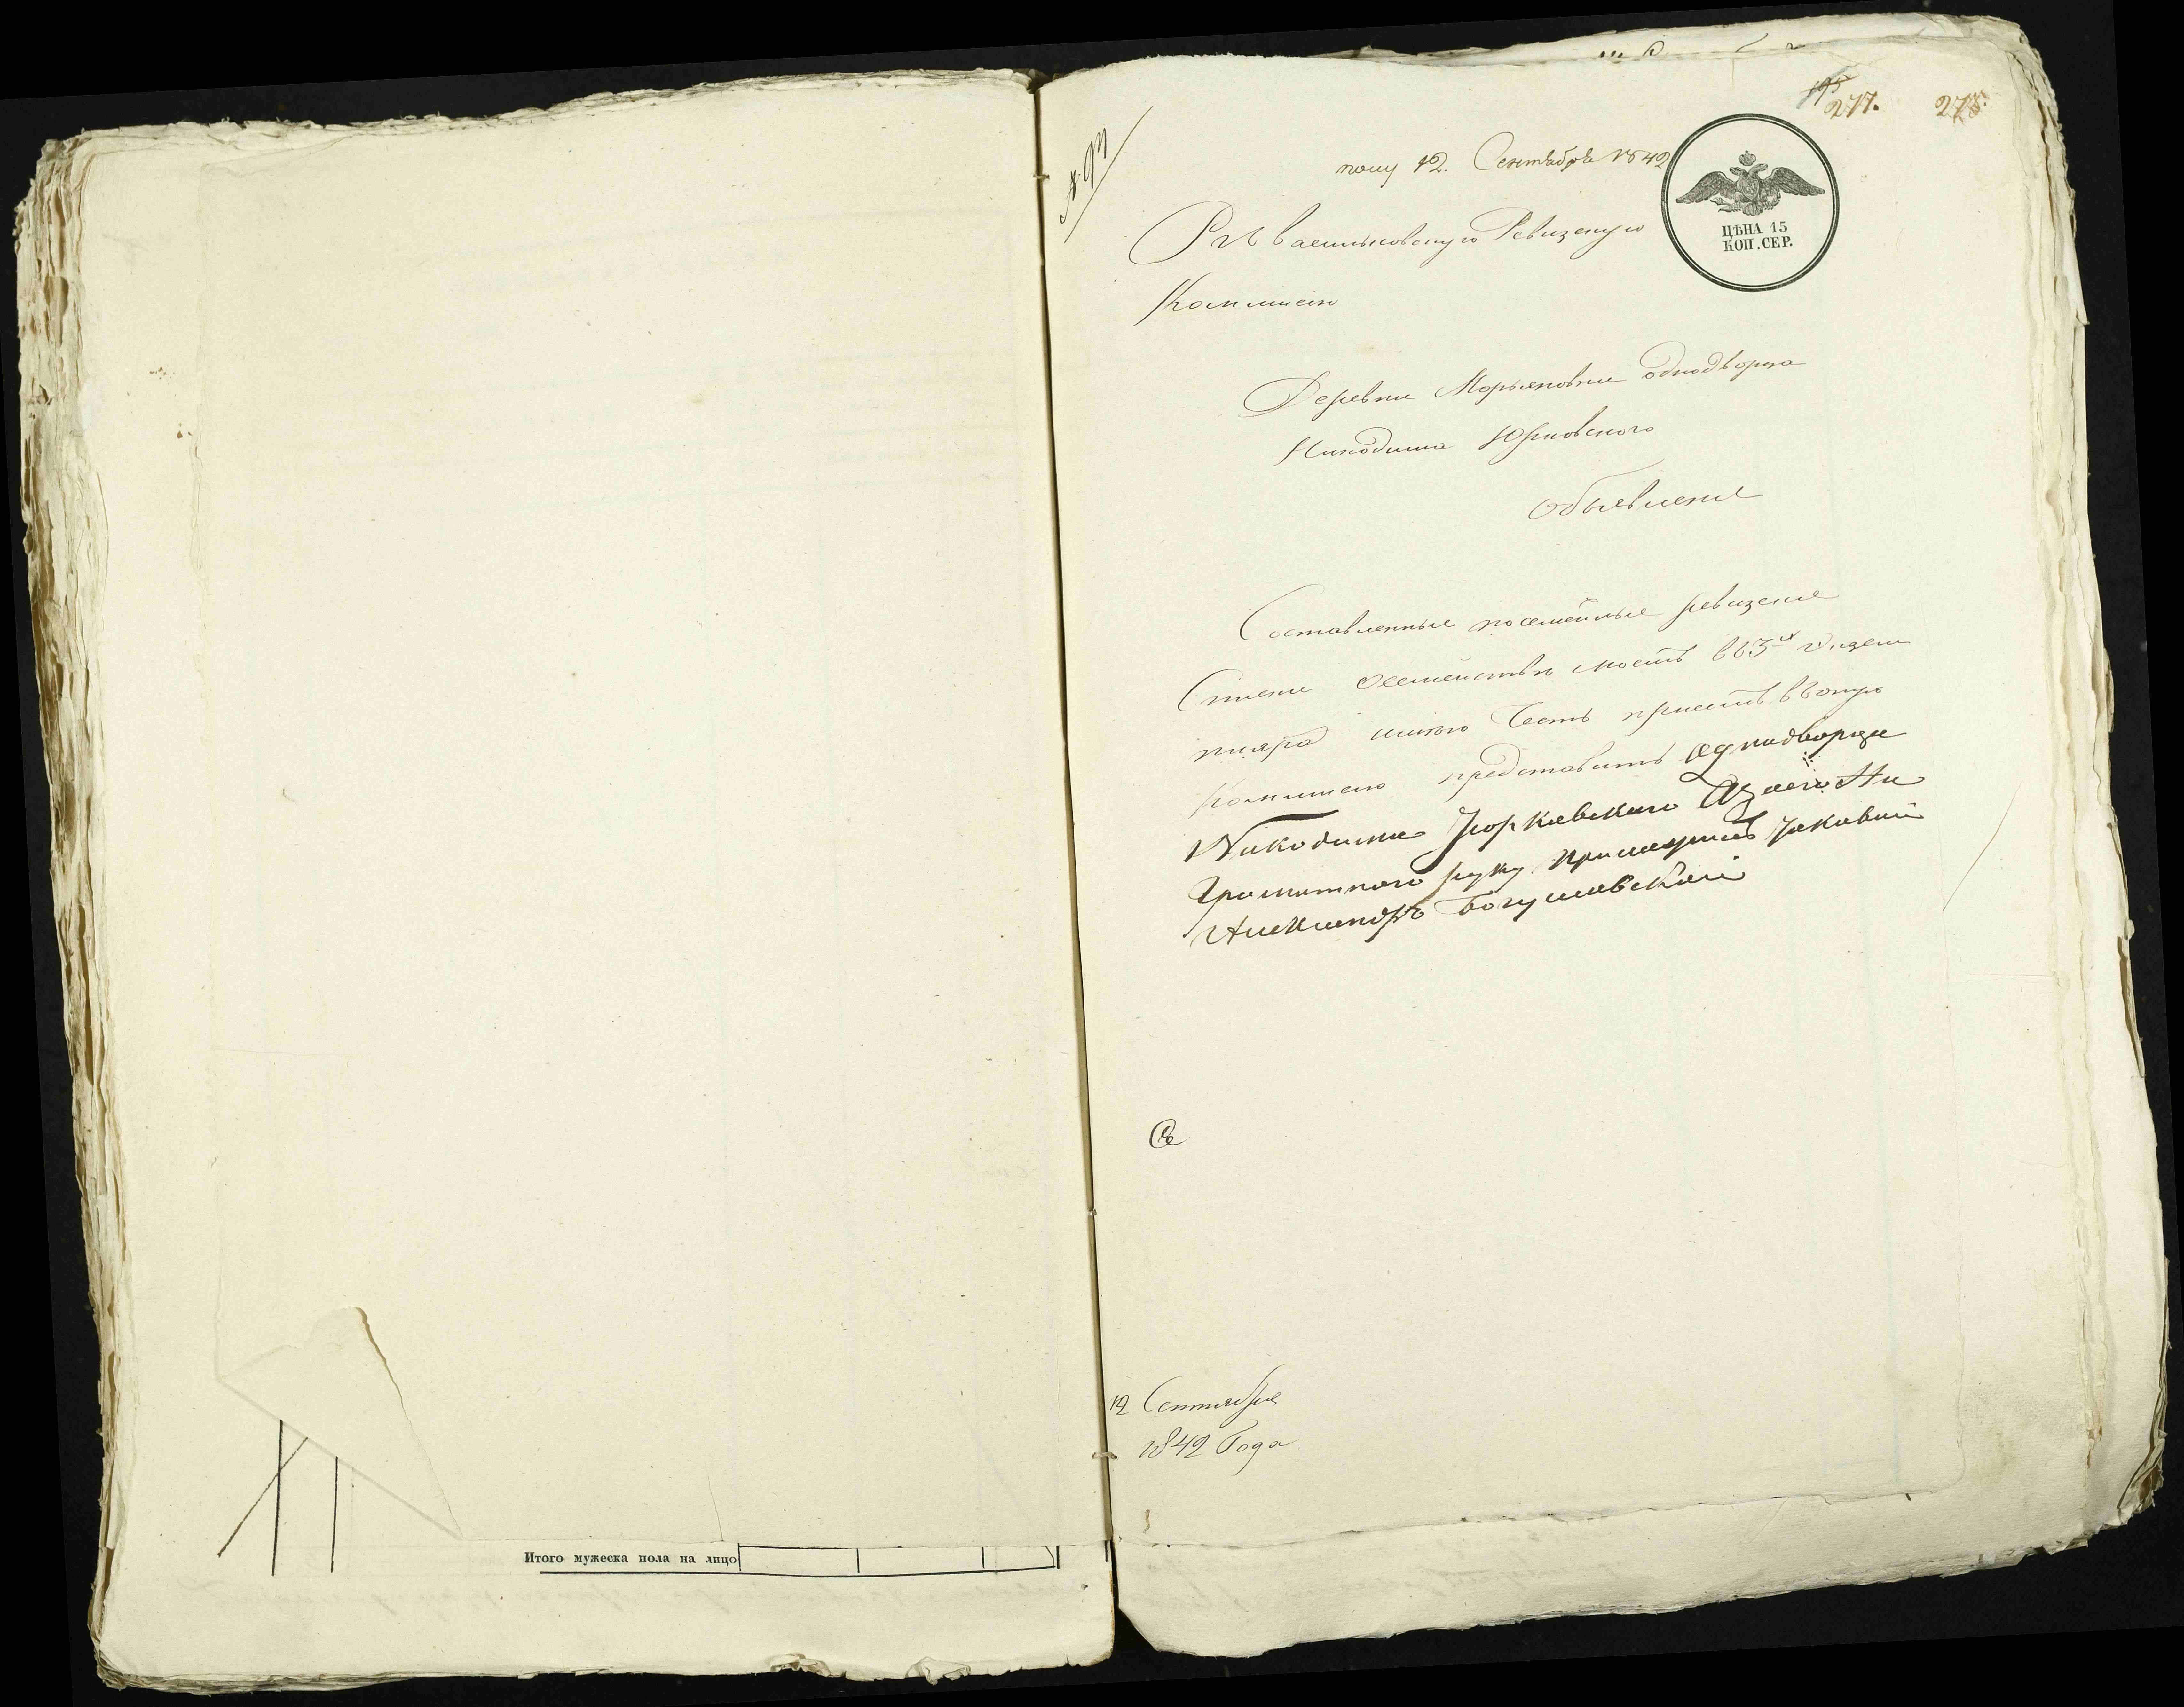 195
277. 278.
№ 93
полу 12. Сентября 1842
ЦѢНА 15
КОП. СЕР.
Въ Васильковскую Ревизскую
Комисию
Деревни Марьяновки однодворца
Никодима Юрковского
Объявление
Составленные посемейные ревизские
Списки о семействе моемъ въ 3х экзем
пляра имею честь при семъ в оную
Комисию представить Однодворца
Никодима Юрковского А за его Не
Грамотного руку приложилъ
Александръ Богушевский
12 Сентября
1842 Года
Итого мужеска пола на лицо